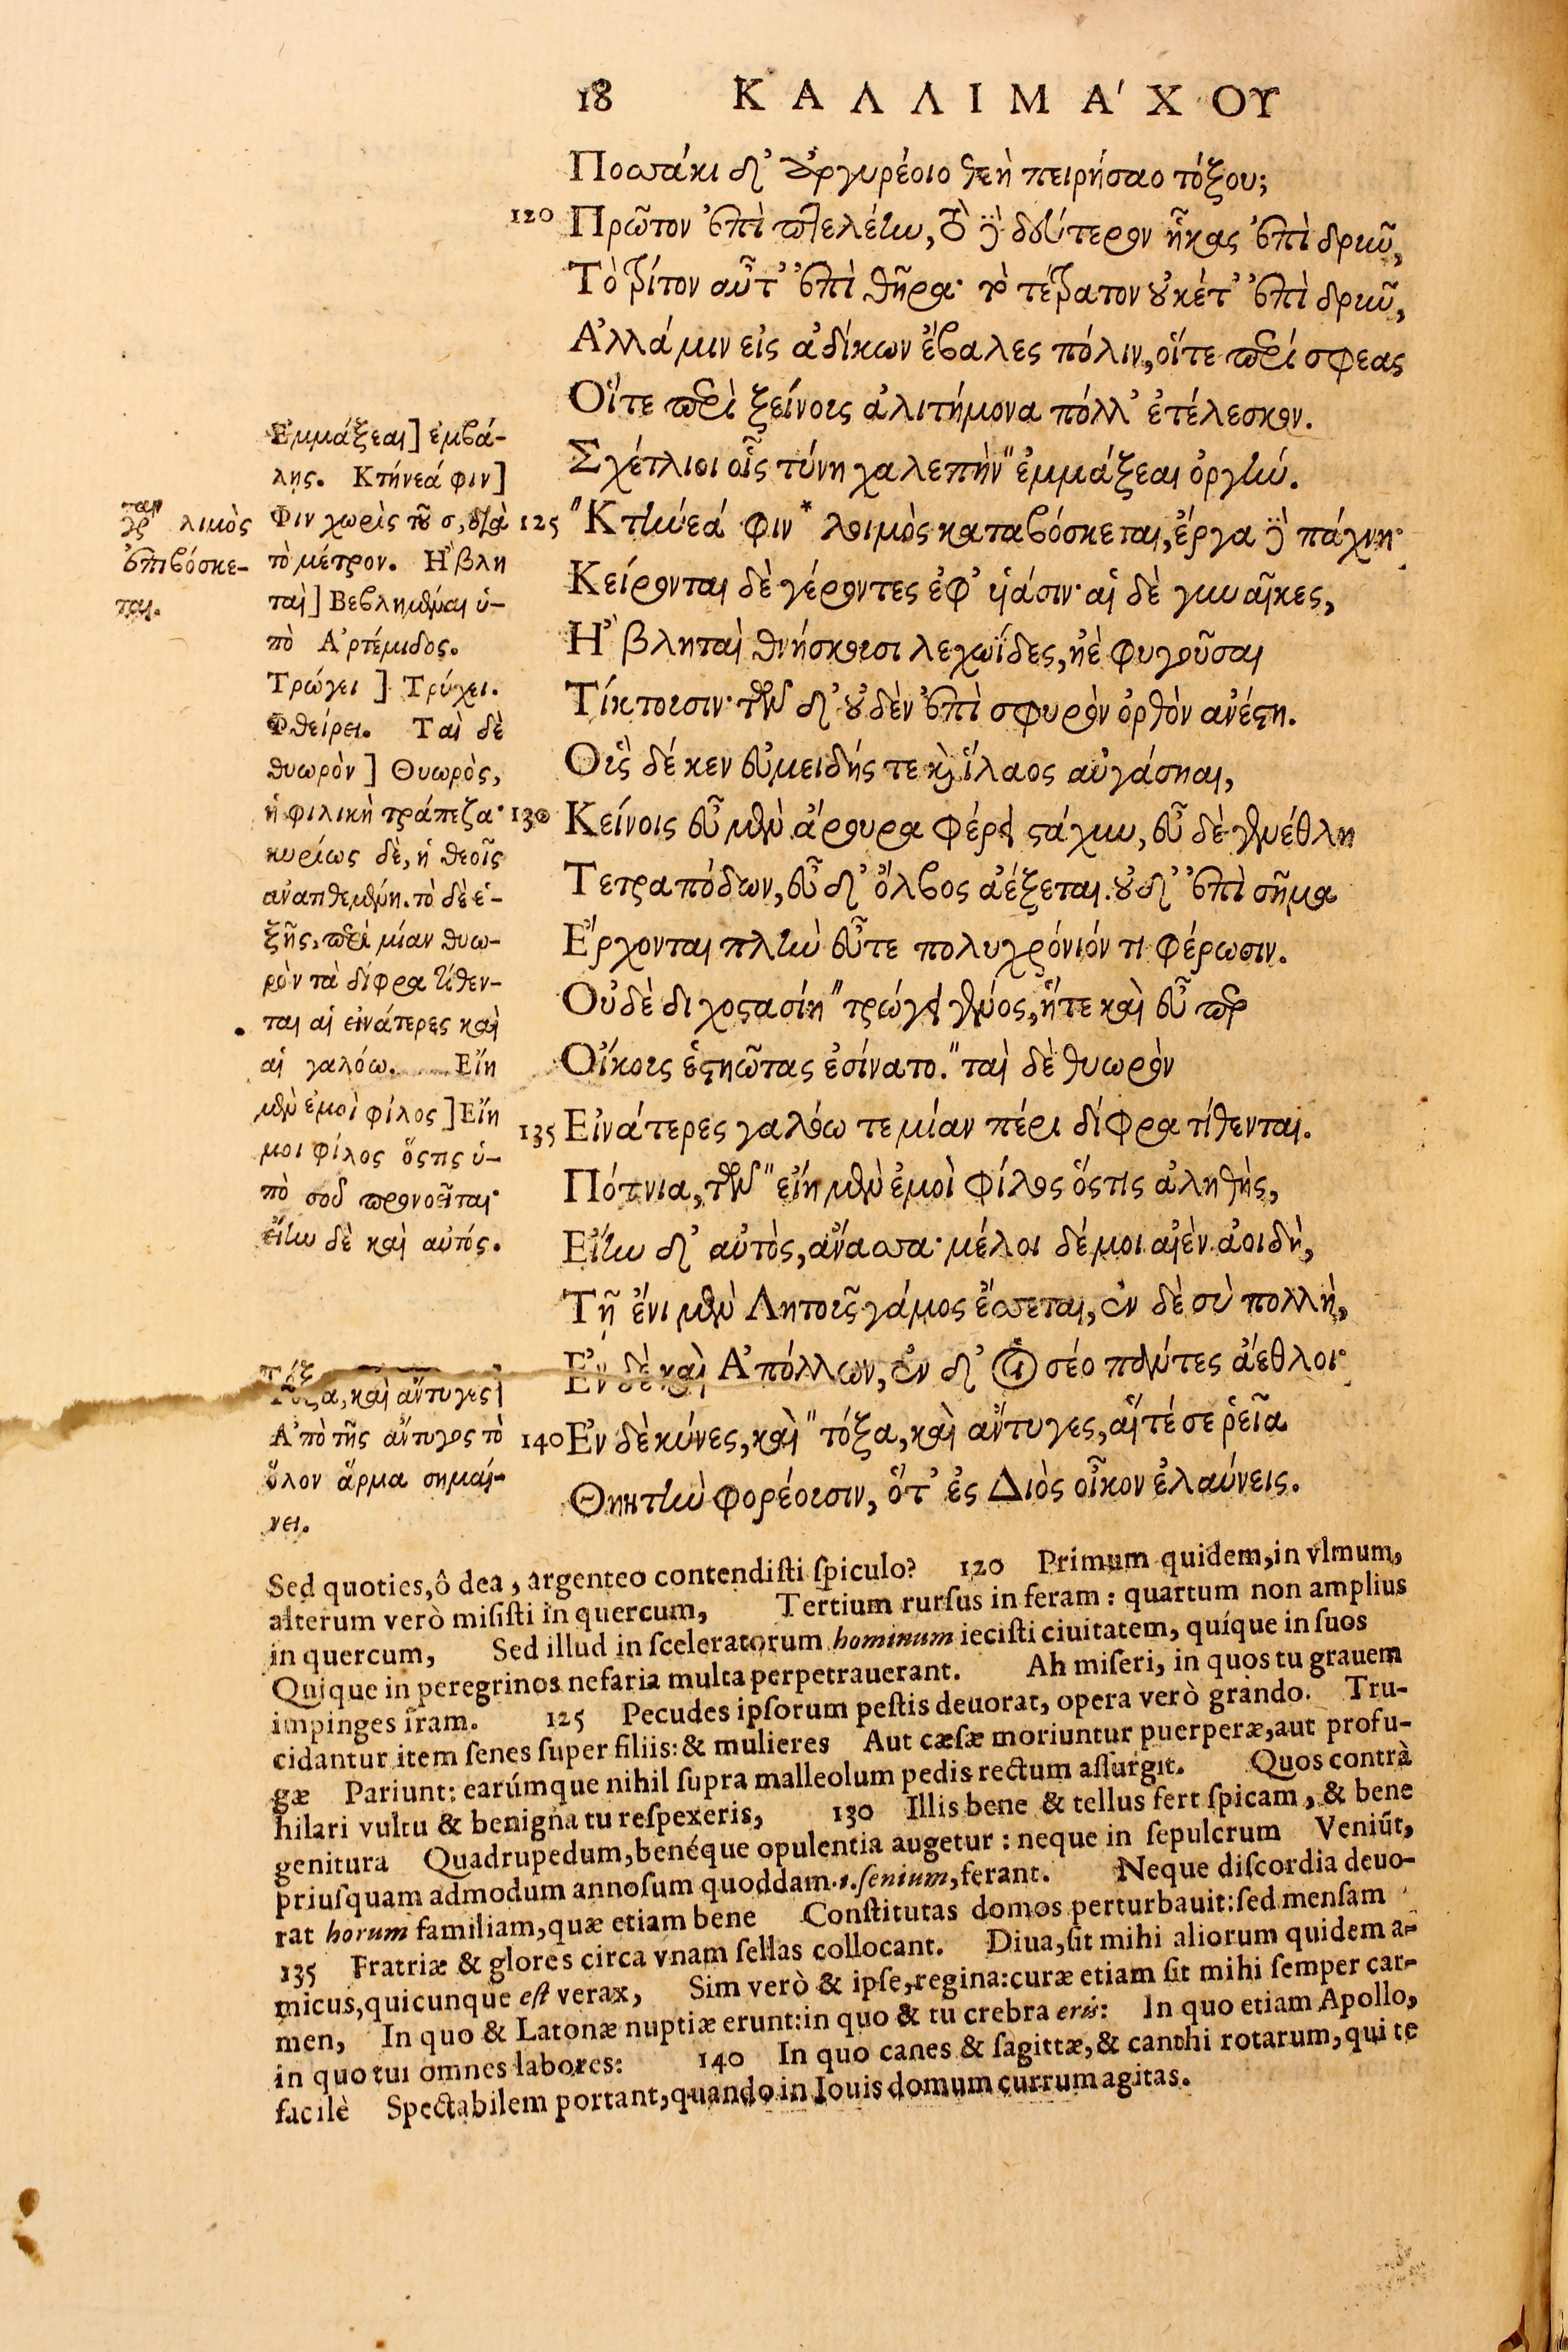 18 ΚΑΛΛΙΜΑ'ΧΟΥ
Ποσσάκι δ' ἀργυρέοιο θεὴ πειρήσαο τόξου;
120 Πρῶτον ἐπὶ πτελέην, τὸ δὲ δεύτερον ἧκας ἐπὶ δρυῦ,
Τὸ τρίτον αὖτ' ἐπὶ θῆρα· τὸ τέτρατον οὐκέτ' ἐπὶ δρυῦ,
Αλλά μιν εἰς ἀδίκων ἔβαλες πόλιν, οἵτε περί σφεας
Οἵτε περὶ ξείνους ἀλιτήμονα πόλλ' ἐτέλεσκον.
Σχέτλιοι οἷς τύνη χαλεπὴν "ἐμμάξεαι ὀργήν.
125 "Κτήνεά φιν * λοιμὸς καταβόσκεται, ἔργα δὲ πάχνη·
Κείρονται δὲ γέροντες ἐφ' υἱάσιν· αἱ δὲ γυναῖκες,
Η' βληταὶ θνήσκουσι λεχωΐδες, ἠὲ φυγοῦσαι
Τίκτουσιν· τῶν δ' οὐδὲν ἐπὶ σφυρὸν ὀρθὸν ἀνέστη.
Οἷς δέ κεν εὐμειδής τε καὶ ἵλαος αὐγάσηαι,
130 Κείνοις εὖ μὲν ἄρουρα φέρει στάχυν, εὖ δὲ γενέθλη
Τετραπόδων, εὖ δ' ὄλβος ἀέξεται. οὐδ' ἐπὶ σῆμα
Ερχονται πλὴν εὖτε πολυχρόνιόν τι φέρωσιν.
Οὐδὲ διχοστασίη "τρώγει γένος, ἥτε καὶ εὖ περ
Οἴκους ἑστηῶτας ἐσίνατο. "ταὶ δὲ θυωρὸν
135 Εἰνάτερες γαλόω τε μίαν πέρι δίφρα τίθενται.
Πότνια, τῶν "εἴη μὲν ἐμοὶ φίλος ὅστις ἀληθής,
Εἴην δ' αὐτὸς, ἄνασσα· μέλοι δέ μοι αἰὲν ἀοιδὴ,
Τῇ ἔνι μὲν Λητοῦς γάμος ἔσσεται, ἐν δὲ σὺ πολλὴ,
Εν δὲ καὶ Α'πόλλων, ἐν δ' οἵ σέο πάντες ἄεθλοι·
140 Εν δὲ κύνες, καὶ "τόξα, καὶ ἄντυγες, αἵ τέ σε ῥεῖα
Θηητὴν φορέουσιν, ὅτ' ἐς Διὸς οἶκον ἐλαύνεις.
Εμμάξεαι] ἐμβά-
λης. Κτήνεά φιν]
Φιν χωρὶς τοῦ σ, διὰ
τὸ μέτρον. Η' βλη
ταὶ] Βεβλημέναι ὑ-
πὸ Α'ρτέμιδος.
Τρώγει] Τρύχει.
Φθείρει. Ταὶ δὲ
θυωρὸν] Θυωρὸς,
ἡ φιλικὴ τράπεζα·
κυρίως δὲ, ἡ θεοῖς
ἀνατιθεμένη. τὸ δὲ ἑ-
ξῆς, περὶ μίαν θυω-
ρὸν τὰ δίφρα τίθεν-
ται αἱ εἰνάτερες καὶ
αἱ γαλόω. Εἴη
μὲν ἐμοὶ φίλος] Εἴη
μοι φίλος ὅστις ὑ-
πὸ σοῦ προνοεῖται·
εἴην δὲ καὶ αὐτός.
Τόξα, καὶ ἄντυγες]
Α'πὸ τῆς ἄντυγος τὸ
ὅλον ἅρμα σημαί-
νει.
λιμὸς
ἐπιβόσκε-
ται.
Sed quoties, ô dea, argenteo contendisti spiculo? 120 Primum quidem, in vlmum,
alterum verò misisti in quercum, Tertium rursus in feram: quartum non amplius
in quercum, Sed illud in sceleratorum hominum iecisti ciuitatem, quíque in suos
Quique in peregrinos nefaria multa perpetrauerant. Ah miseri, in quos tu grauem
impinges iram. 125 Pecudes ipsorum pestis deuorat, opera verò grando. Tru-
cidantur item senes super filiis: & mulieres Aut cæsæ moriuntur puerperæ, aut profu-
gæ Pariunt: earúmque nihil supra malleolum pedis rectum assurgit. Quos contrà
hilari vultu & benigna tu respexeris, 130 Illis bene & tellus fert spicam, & bene
genitura Quadrupedum, benéque opulentia augetur: neque in sepulcrum Veniũt,
priusquam admodum annosum quoddam .i. senium, ferant. Neque discordia deuo-
rat horum familiam, quæ etiam bene Constitutas domos perturbauit: sed mensam
135 Fratriæ & glores circa vnam sellas collocant. Diua, sit mihi aliorum quidem a-
micus, quicunque est verax, Sim verò & ipse, regina: curæ etiam sit mihi semper car-
men, In quo & Latonæ nuptiæ erunt: in quo & tu crebra eris: In quo etiam Apollo,
in quo tui omnes labores: 140 In quo canes & sagittæ, & canthi rotarum, qui te
facilè Spectabilem portant, quando in Iouis domum currum agitas.